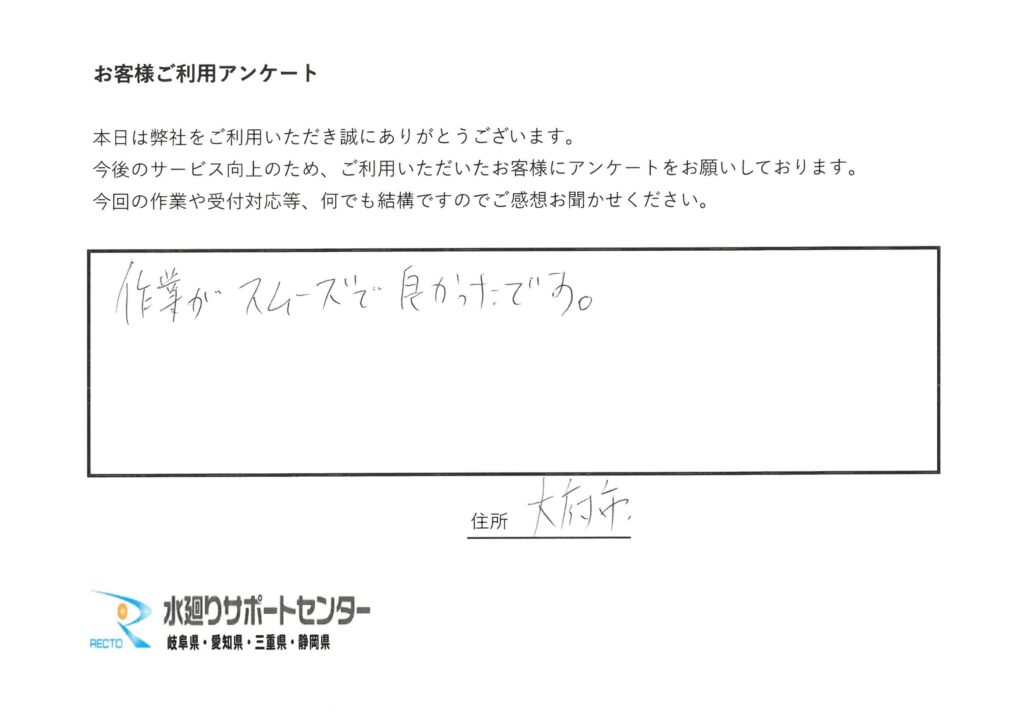 お客様ご利用アンケート
本日は弊社をご利用いただき誠にありがとうございます。
今後のサービス向上のため、ご利用いただいたお客様にアンケートをお願いしております。
今回の作業や受付対応等、何でも結構ですのでご感想お聞かせください。
作業がスムーズで良かったです。
住所 大府市
RECTO 水廻りサポートセンター
岐阜県・愛知県・三重県・静岡県